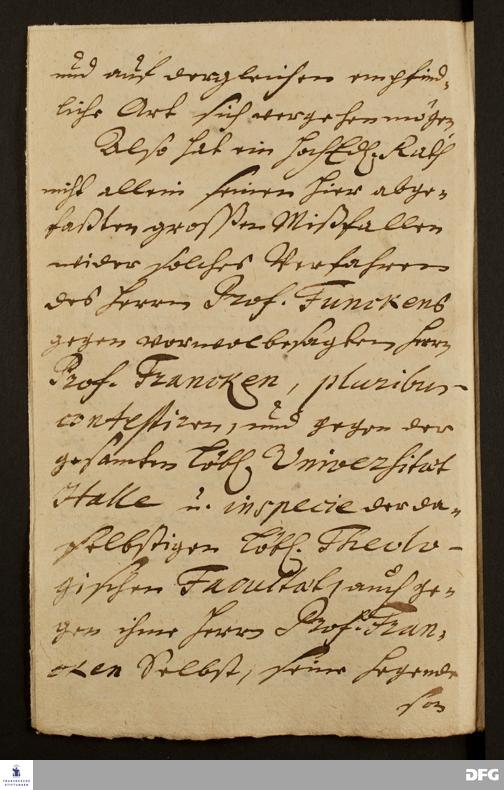 und auf dergleichen empfind-
liche Art sich vergehen mögen
Also hat ein HochEdl. Rath
nicht allein seinen hier abge-
faßten grossen Mißfallen
wider solches Verfahren
des Herrn Prof. Funckens
gegen vorwolbesagten Herrn
Prof. Francken, pluribus
contestiren, und gegen der
gesamten Löbl. Universitat
Halle u. in specie der da-
selbstigen Löbl. Theolo-
gischen Facultät, auch ge-
gen ihme Herrn Prof. Fran-
cken Selbst, seine hegende
FRANCKESCHE
STIFTUNGEN
DFG